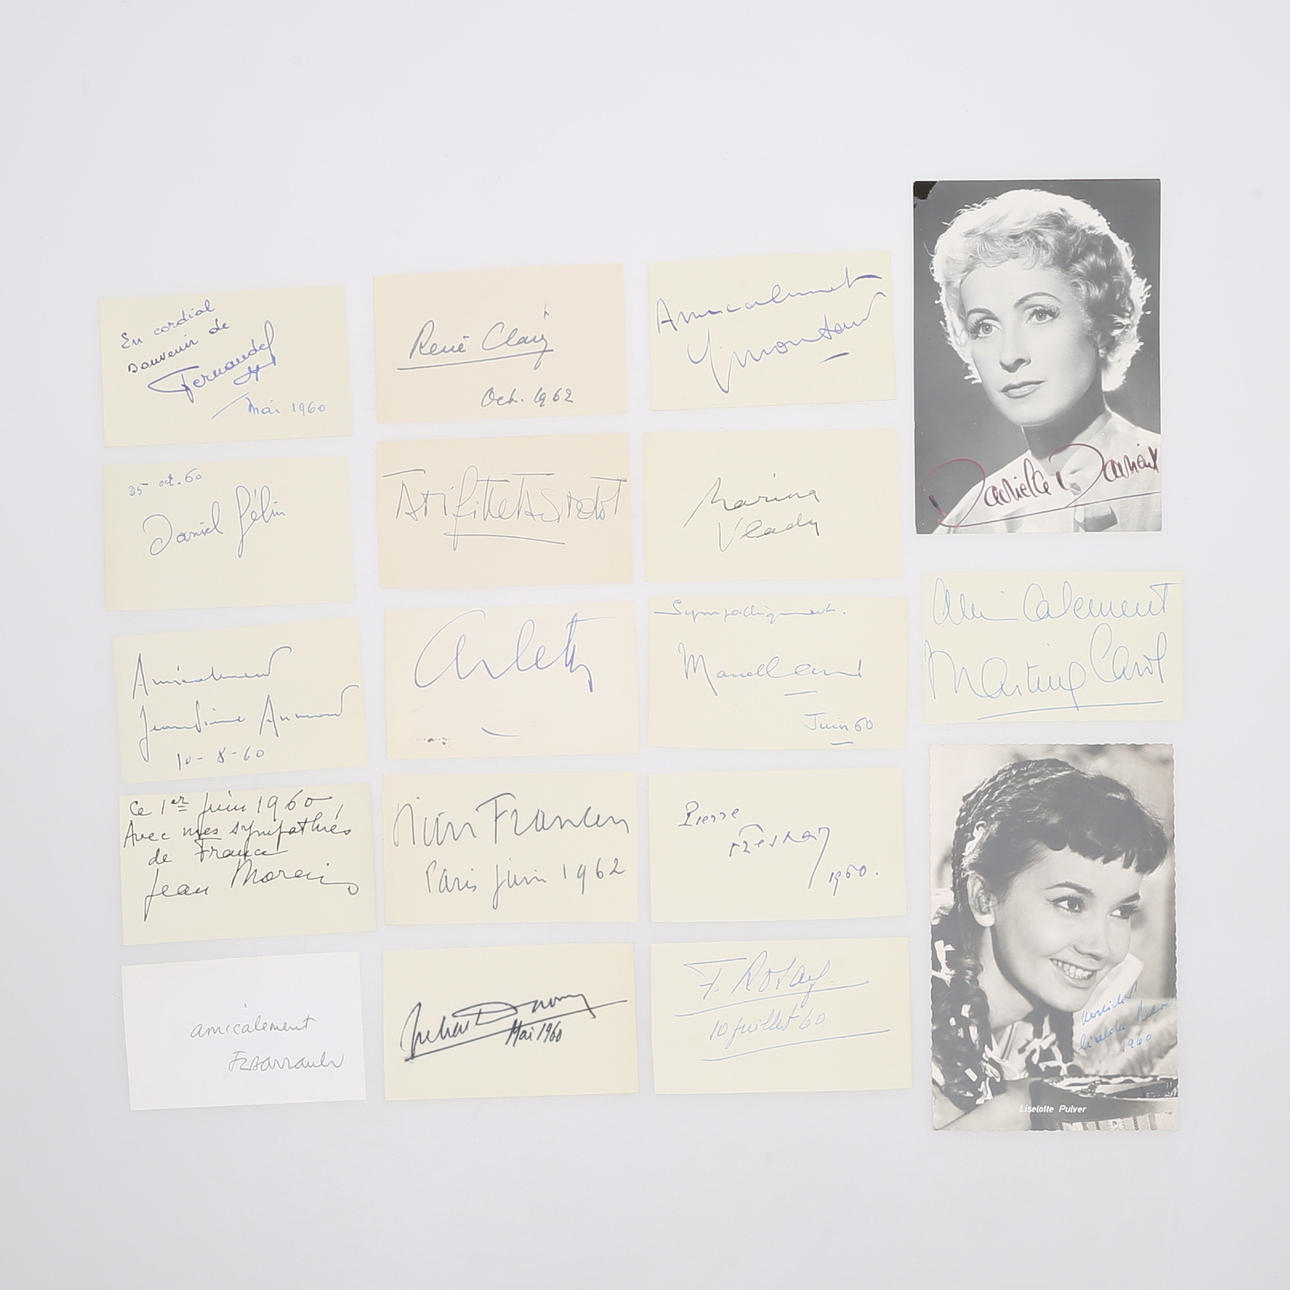 En cordial
souvenir de
Fernandel
Mai 1960
25 oct. 60
Daniel Gélin
Amicalement
Jean Pierre Aumont
10-8-60
Ce 1er juin 1960
Avec mes sympathies
de France
Jean Marais
amicalement
JLBarrault
René Clair
Oct. 1962
Arletty
Paris juin 1962
Mai 1960
Amicalement
YMontand
Marina
Vlady
Sympathiquement.
Juin 60
Pierre
Fresnay
1960.
F. Rosay
10 juillet 60
Danielle Darrieux
Amicalement
Martine Carol
Liselotte Pulver
1960
Liselotte Pulver